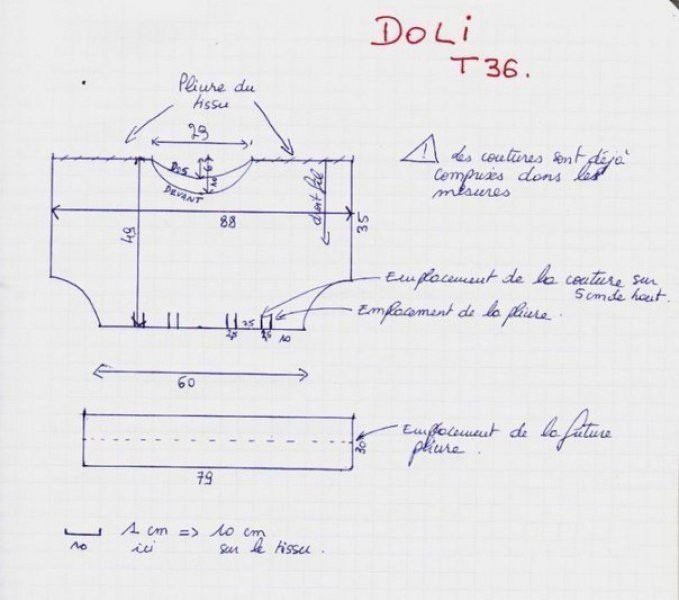 DOLI
T36.
Pliure du
tissu
29
⚠ les coutures sont déjà
comprises dans les
mesures
DOS
6
DEVANT
10
droit fil
88
35
49
Emplacement de la couture sur
5cm de haut.
Emplacement de la pliure.
2,5
7,5
2,5
10
60
Emplacement de la future
pliure.
30
79
1 cm => 10 cm
10
ici sur le tissu.